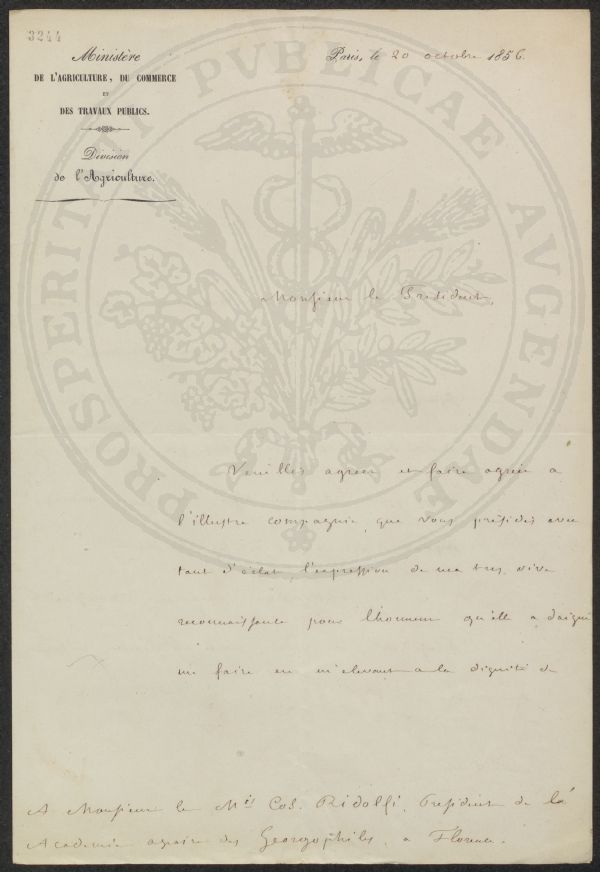 3244
Ministère
DE L'AGRICULTURE, DU COMMERCE
ET
DES TRAVAUX PUBLICS.
Division
de l'Agriculture.
Paris, le 20 octobre 1856.
PROSPERITATI PUBLICAE AUGENDAE
Monsieur le President,
Veuillez agreer et faire agreer a
l'illustre compagnie que vous présidez avec
tant d'éclat, l'expression de ma tres vive
reconnaissance pour l'honneur qu'elle a daigné
me faire en m'elevant a la dignité de
A Monsieur le Mis Cos. Ridolfi, President de la
Academie agraire des Georgophiles, a Florence.